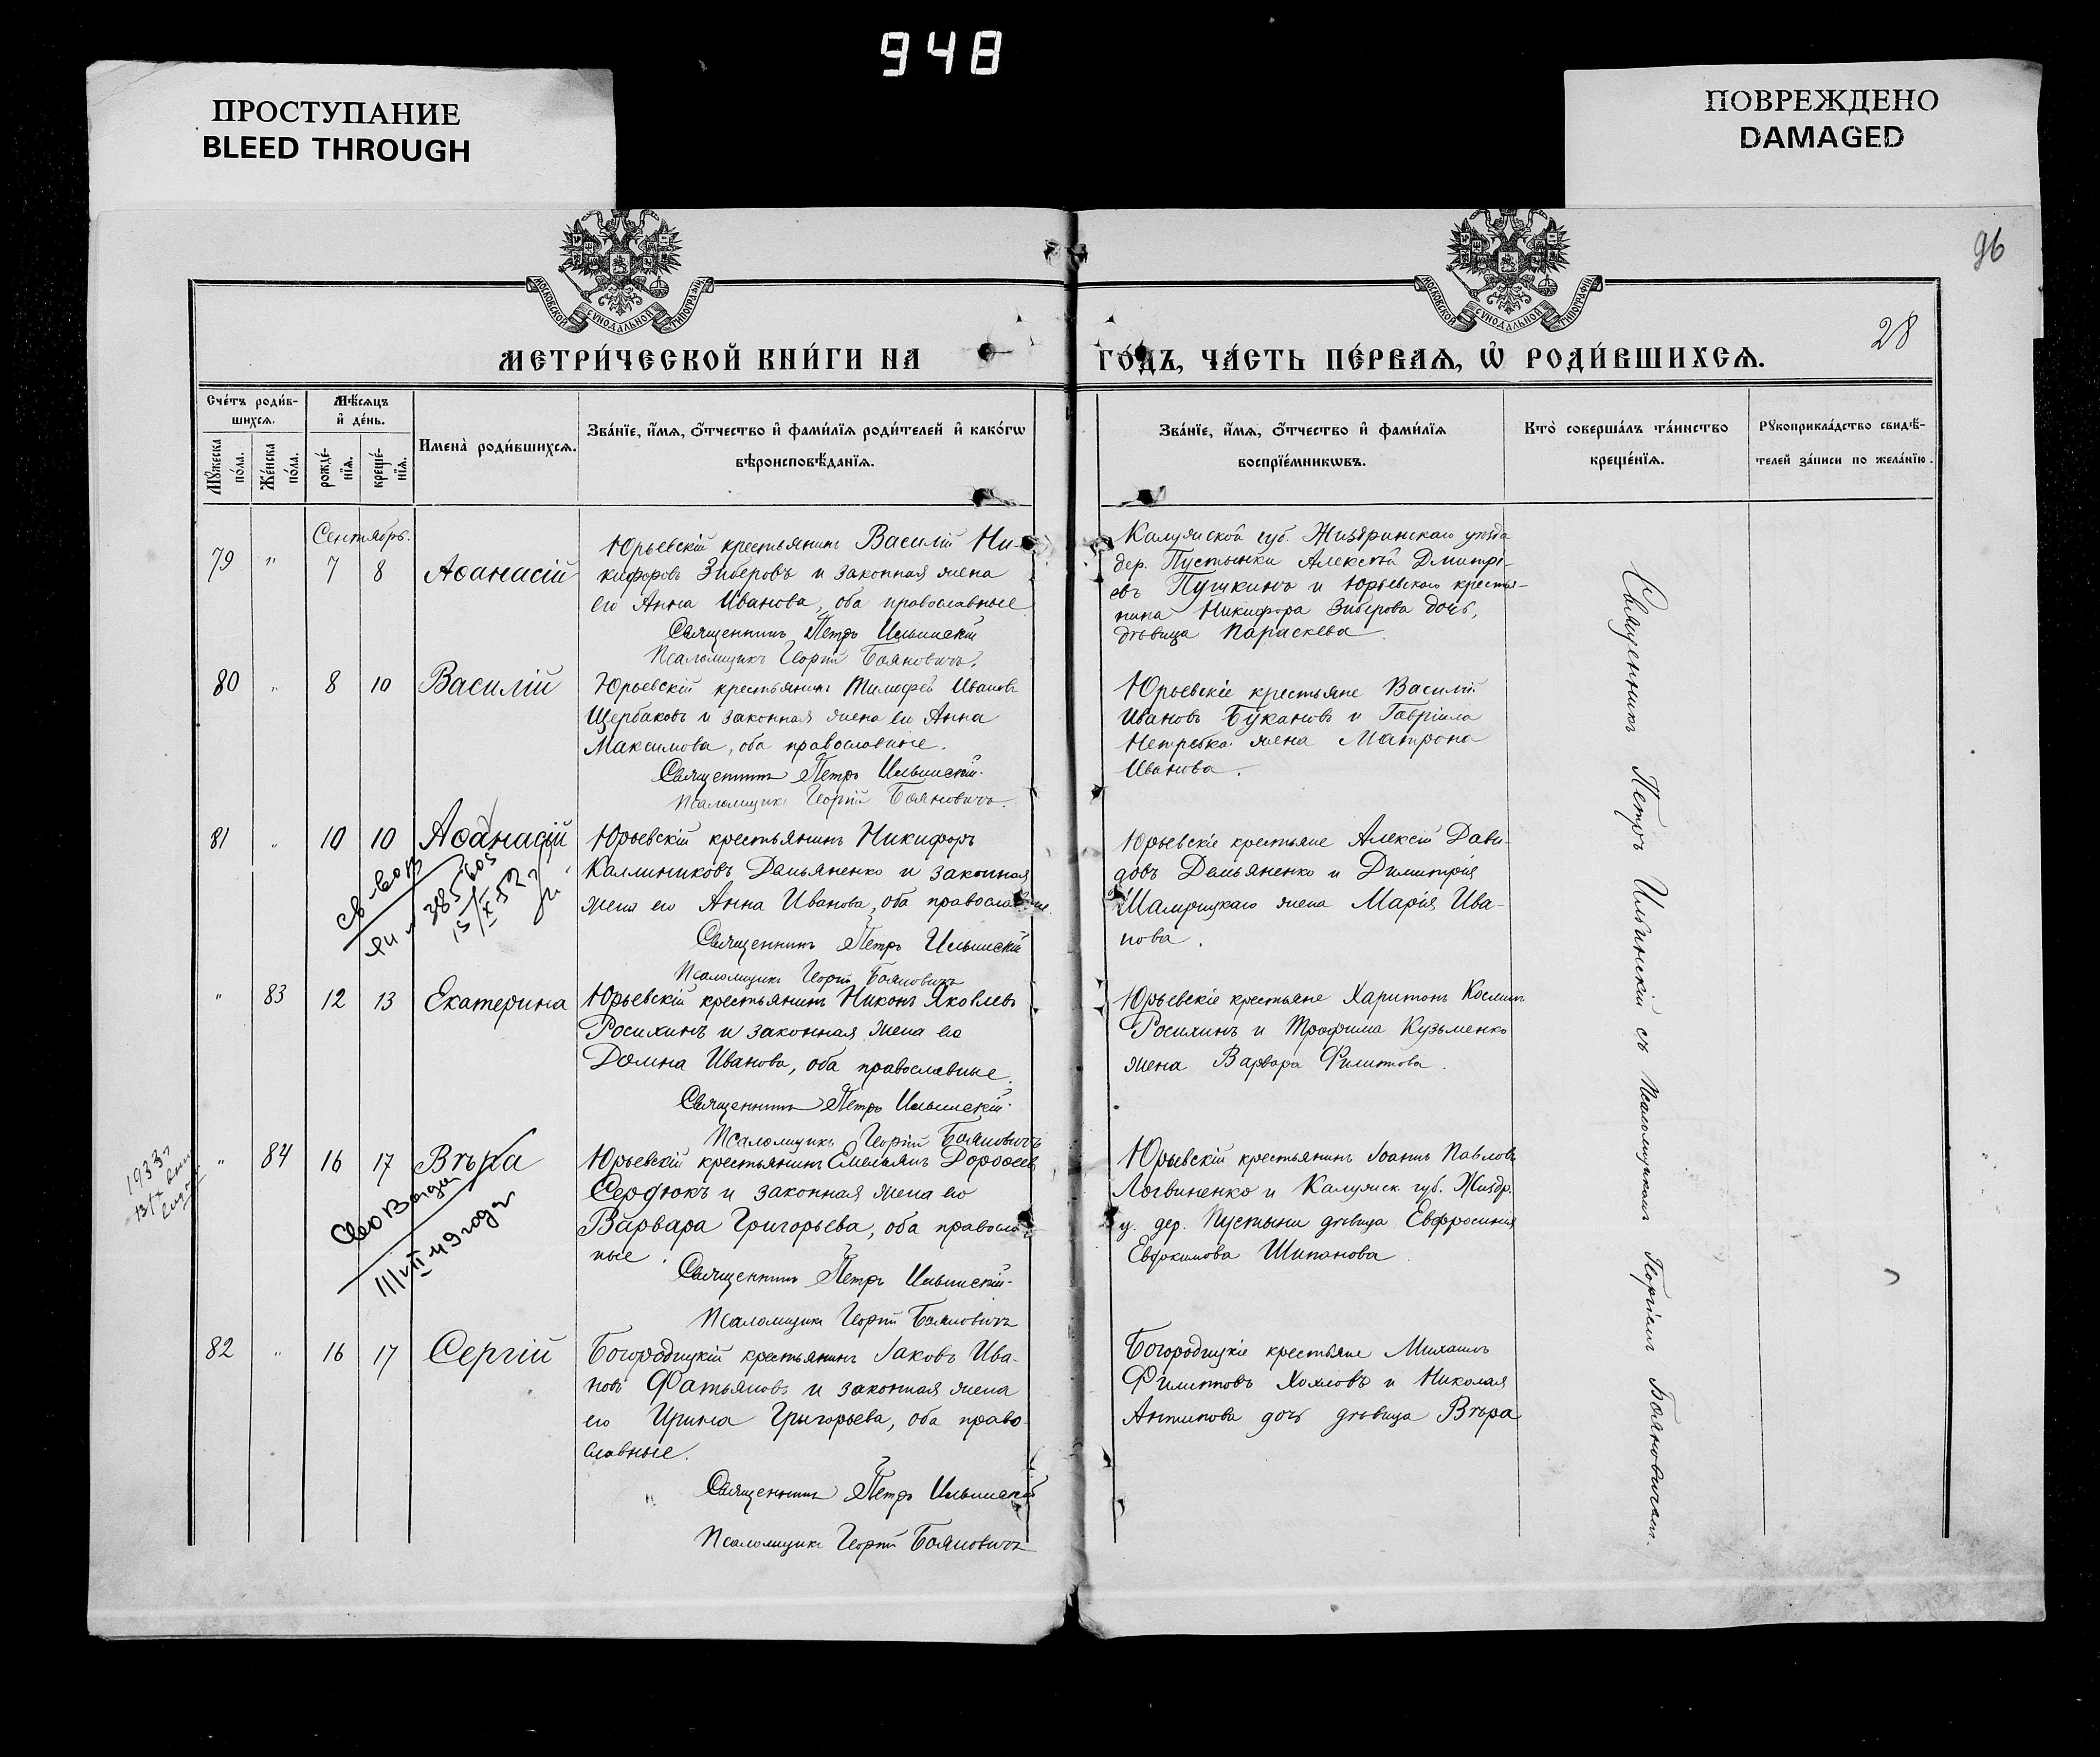 948
ПРОСТУПАНИЕ
BLEED THROUGH
ПОВРЕЖДЕНО
DAMAGED
96
МОСКОВСКОЙ СѴНОДАЛЬНОЙ ТИПОГРАФІИ
МОСКОВСКОЙ СѴНОДАЛЬНОЙ ТИПОГРАФІИ
28
МЕТРИ́ЧЕСКОЙ КНИ́ГИ НА
ГО́ДЪ, ЧА́СТЬ ПЕ́РВАѦ, Ѿ РОДИ́ВШИХСѦ.
Сче́тъ роди́в-
шихсѧ.
Мꙋ́жеска по́ла.
Же́нска по́ла.
Мѣ́сѧцъ
и҆ де́нь.
рожде́-
нїѧ.
креще́-
нїѧ.
И҆мена̀ роди́вшихсѧ.
Зва́нїе, и҆́мѧ, ѻ҆́тчество и҆ фами́лїѧ роди́телей и҆ како́гѡ
вѣроисповѣ́данїѧ.
Зва́нїе, и҆́мѧ, ѻ҆́тчество и҆ фами́лїѧ
воспрїе́мникѡвъ.
Кто̀ соверша́лъ та́инство
креще́нїѧ.
Рꙋкоприкла́дство свидѣ́-
телей за́писи по жела́нїю.
Сентябрь.
79 " 7 8 Аѳанасій
Юрьевскій крестьянинъ Василій Ни-
кифоровъ Зиберовъ и законная жена
его Анна Иванова, оба православные
Священникъ Петръ Ильинскій
Псаломщикъ Георгій Бояновичъ.
Калужской губ. Жиздринскаго уѣзда
дер. Пустынки Алексѣй Дмитрі-
евъ Пушкинъ и Юрьевскаго крестья-
нина Никифора Зиберова дочь,
дѣвица Параскева.
80 " 8 10 Василій
Юрьевскій крестьянинъ Тимофей Ивановъ
Щербаковъ и законная жена его Анна
Максимова, оба православные.
Священникъ Петръ Ильинскій.
Псаломщикъ Георгій Бояновичъ.
Юрьевскіе крестьяне Василій
Ивановъ Букановъ и Гавріила
Нетребка жена Матрона
Иванова.
81 " 10 10 Аѳанасій
Юрьевскій крестьянинъ Никифоръ
Каллиниковъ Демьяненко и законная
жена его Анна Иванова, оба православные
Священникъ Петръ Ильинскій
Псаломщикъ Георгій Бояновичъ
Юрьевскіе крестьяне Алексій Дави-
довъ Демьяненко и Димитрія
жена Марія Ива-
нова.
" 83 12 13 Екатерина
Юрьевскій крестьянинъ Никонъ Яковлевъ
Росихинъ и законная жена его
Домна Иванова, оба православные.
Священникъ Петръ Ильинскій.
Псаломщикъ Георгій Бояновичъ
Юрьевскіе крестьяне Харитонъ Косминъ
Росихинъ и Трофима Кузьменко
жена Варвара Филиппова.
1933
" 84 16 17 Вѣра
Юрьевскій крестьянинъ Емельянъ Дороѳеевъ
Сердюкъ и законная жена его
Варвара Григорьева, оба православ-
ные.
Священникъ Петръ Ильинскій.
Псаломщикъ Георгій Бояновичъ
Юрьевскій крестьянинъ Іоаннъ Павловъ
Логвиненко и Калужск. губ. Жиздр.
у. дер. Пустыни дѣвица Евфросинія
Евдокимова Шипанова.
82 " 16 17 Сергій
Богородицкій крестьянинъ Іаковъ Ива-
новъ Фатьяновъ и законная жена
его Ирина Григорьева, оба право-
славные.
Священникъ Петръ Ильинскій
Псаломщикъ Георгій Бояновичъ
Богородицкіе крестьяне Михаилъ
Филипповъ Хохловъ и Николая
Антипова дочь дѣвица Вѣра
Священникъ Петръ Ильинскій съ псаломщикомъ Георгіемъ Бояновичемъ.